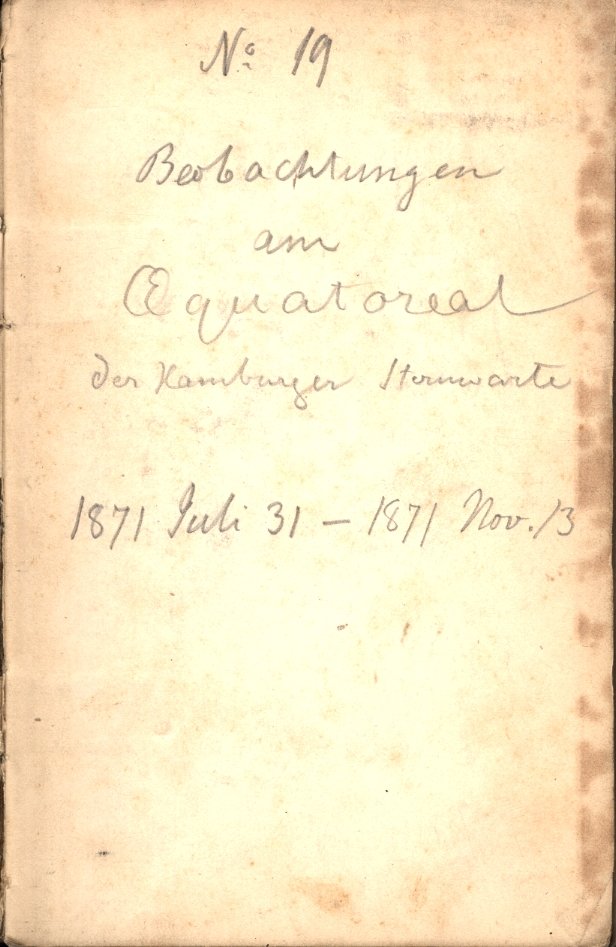 No 19
Beobachtungen
am
Œquatoreal
der Hamburger Sternwarte
1871 Juli 31 — 1871 Nov. 13